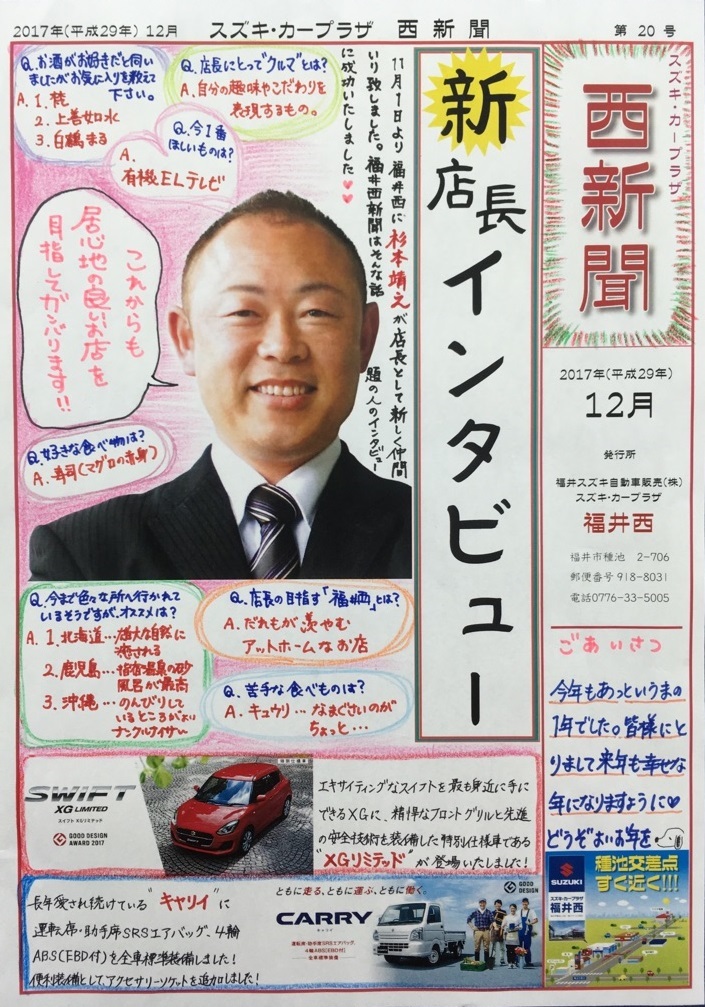 2017年(平成29年) 12月 スズキ・カープラザ 西新聞 第20号
スズキ・カープラザ
西新聞
2017年(平成29年)
12月
発行所
福井スズキ自動車販売(株)
スズキ・カープラザ
福井西
福井市種池 2-706
郵便番号918-8031
電話0776-33-5005
ごあいさつ
今年もあっというまの
1年でした。皆様にと
りまして来年も幸せな
年になりますように♡
どうぞよいお年を
新店長インタビュー
11月1日より福井西に杉本靖之が店長として新しく仲間
いり致しました。福井西新聞はそんな話題の人のインタビュー
に成功いたしました♥♥
Q.お酒がお好きだと伺い
ましたがお気に入りを教えて
下さい。
A.1.
2.上善如水
3.白鶴まる
Q.店長にとって"クルマ"とは?
A.自分の趣味やこだわりを
表現するもの。
Q.今1番
ほしいものは?
A.
有機ELテレビ
これからも
居心地の良いお店を
目指してガンバります!!
Q.好きな食べ物は?
A.寿司(マグロの赤身)
Q.今まで色々な所へ行かれて
いるそうですが、オススメは?
A.1.北海道…雄大な自然に
癒される
2.鹿児島…指宿温泉の砂
風呂が最高
3.沖縄…のんびりして
いるところがよい
ナンクルナイサ〜
Q.店長の目指す「福井西」とは?
A.だれもが羨やむ
アットホームなお店
Q.苦手な食べものは?
A.キュウリ…なまぐさいのが
ちょっと…
SWIFT
XG LIMITED
スイフト XGリミテッド
GOOD DESIGN
AWARD 2017
特別仕様車
エキサイティングなスイフトを最も身近に手に
できるXGに、精悍なフロントグリルと先進
の安全技術を装備した特別仕様車である
"XGリミテッド"が登場いたしました!
長年愛され続けている"キャリイ"に
運転席・助手席SRSエアバッグ、4輪
ABS(EBD付)を全車標準装備しました!
便利装備として、アクセサリーソケットを追加しました!
ともに走る、ともに運ぶ、ともに働く。
CARRY
キャリイ
運転席・助手席SRSエアバッグ
4輪ABS[EBD付]
全車標準装備
GOOD
DESIGN
SUZUKI
スズキ・カープラザ
福井西
種池交差点
すぐ近く!!!